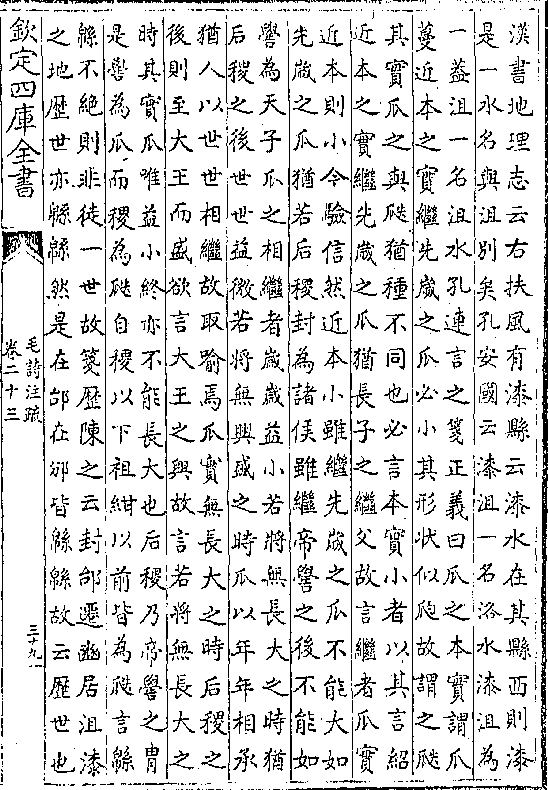 漢書地理志云右扶風有漆縣云漆水在其縣西則漆
是一水名與沮別矣孔安國云漆沮一名洛水漆沮為
一葢沮一名沮水孔連言之箋正義曰瓜之本實謂瓜
蔓近本之實繼先歲之瓜必小其形狀似瓝故謂之瓞
其實瓜之與瓞猶種不同也必言本實小者以其言紹
近本之實繼先歲之瓜猶長子之繼父故言繼者瓜實
近本則小今驗信然近本小雖繼先歲之瓜不能大如
先歲之瓜猶若后稷封為諸侯雖繼帝嚳之後不能如
嚳為天子瓜之相繼者歲歲益小若將無長大之時猶
后稷之後世世益微若將無興盛之時瓜以年年相承
猶人以世世相繼故取喻焉瓜實無長大之時后稷之
後則至大王而盛欲言大王之興故言若將無長大之
時其實瓜唯益小終亦不能長大也后稷乃帝嚳之胄
是嚳為瓜而稷為瓞自稷以下祖紺以前皆為瓞言緜
緜不絶則非徒一世故箋歷陳之云封邰遷豳居沮漆
之地歴世亦緜緜然是在邰在邠皆緜緜故云歴世也
欽定四庫全書
毛詩注疏
卷二十三
三十九